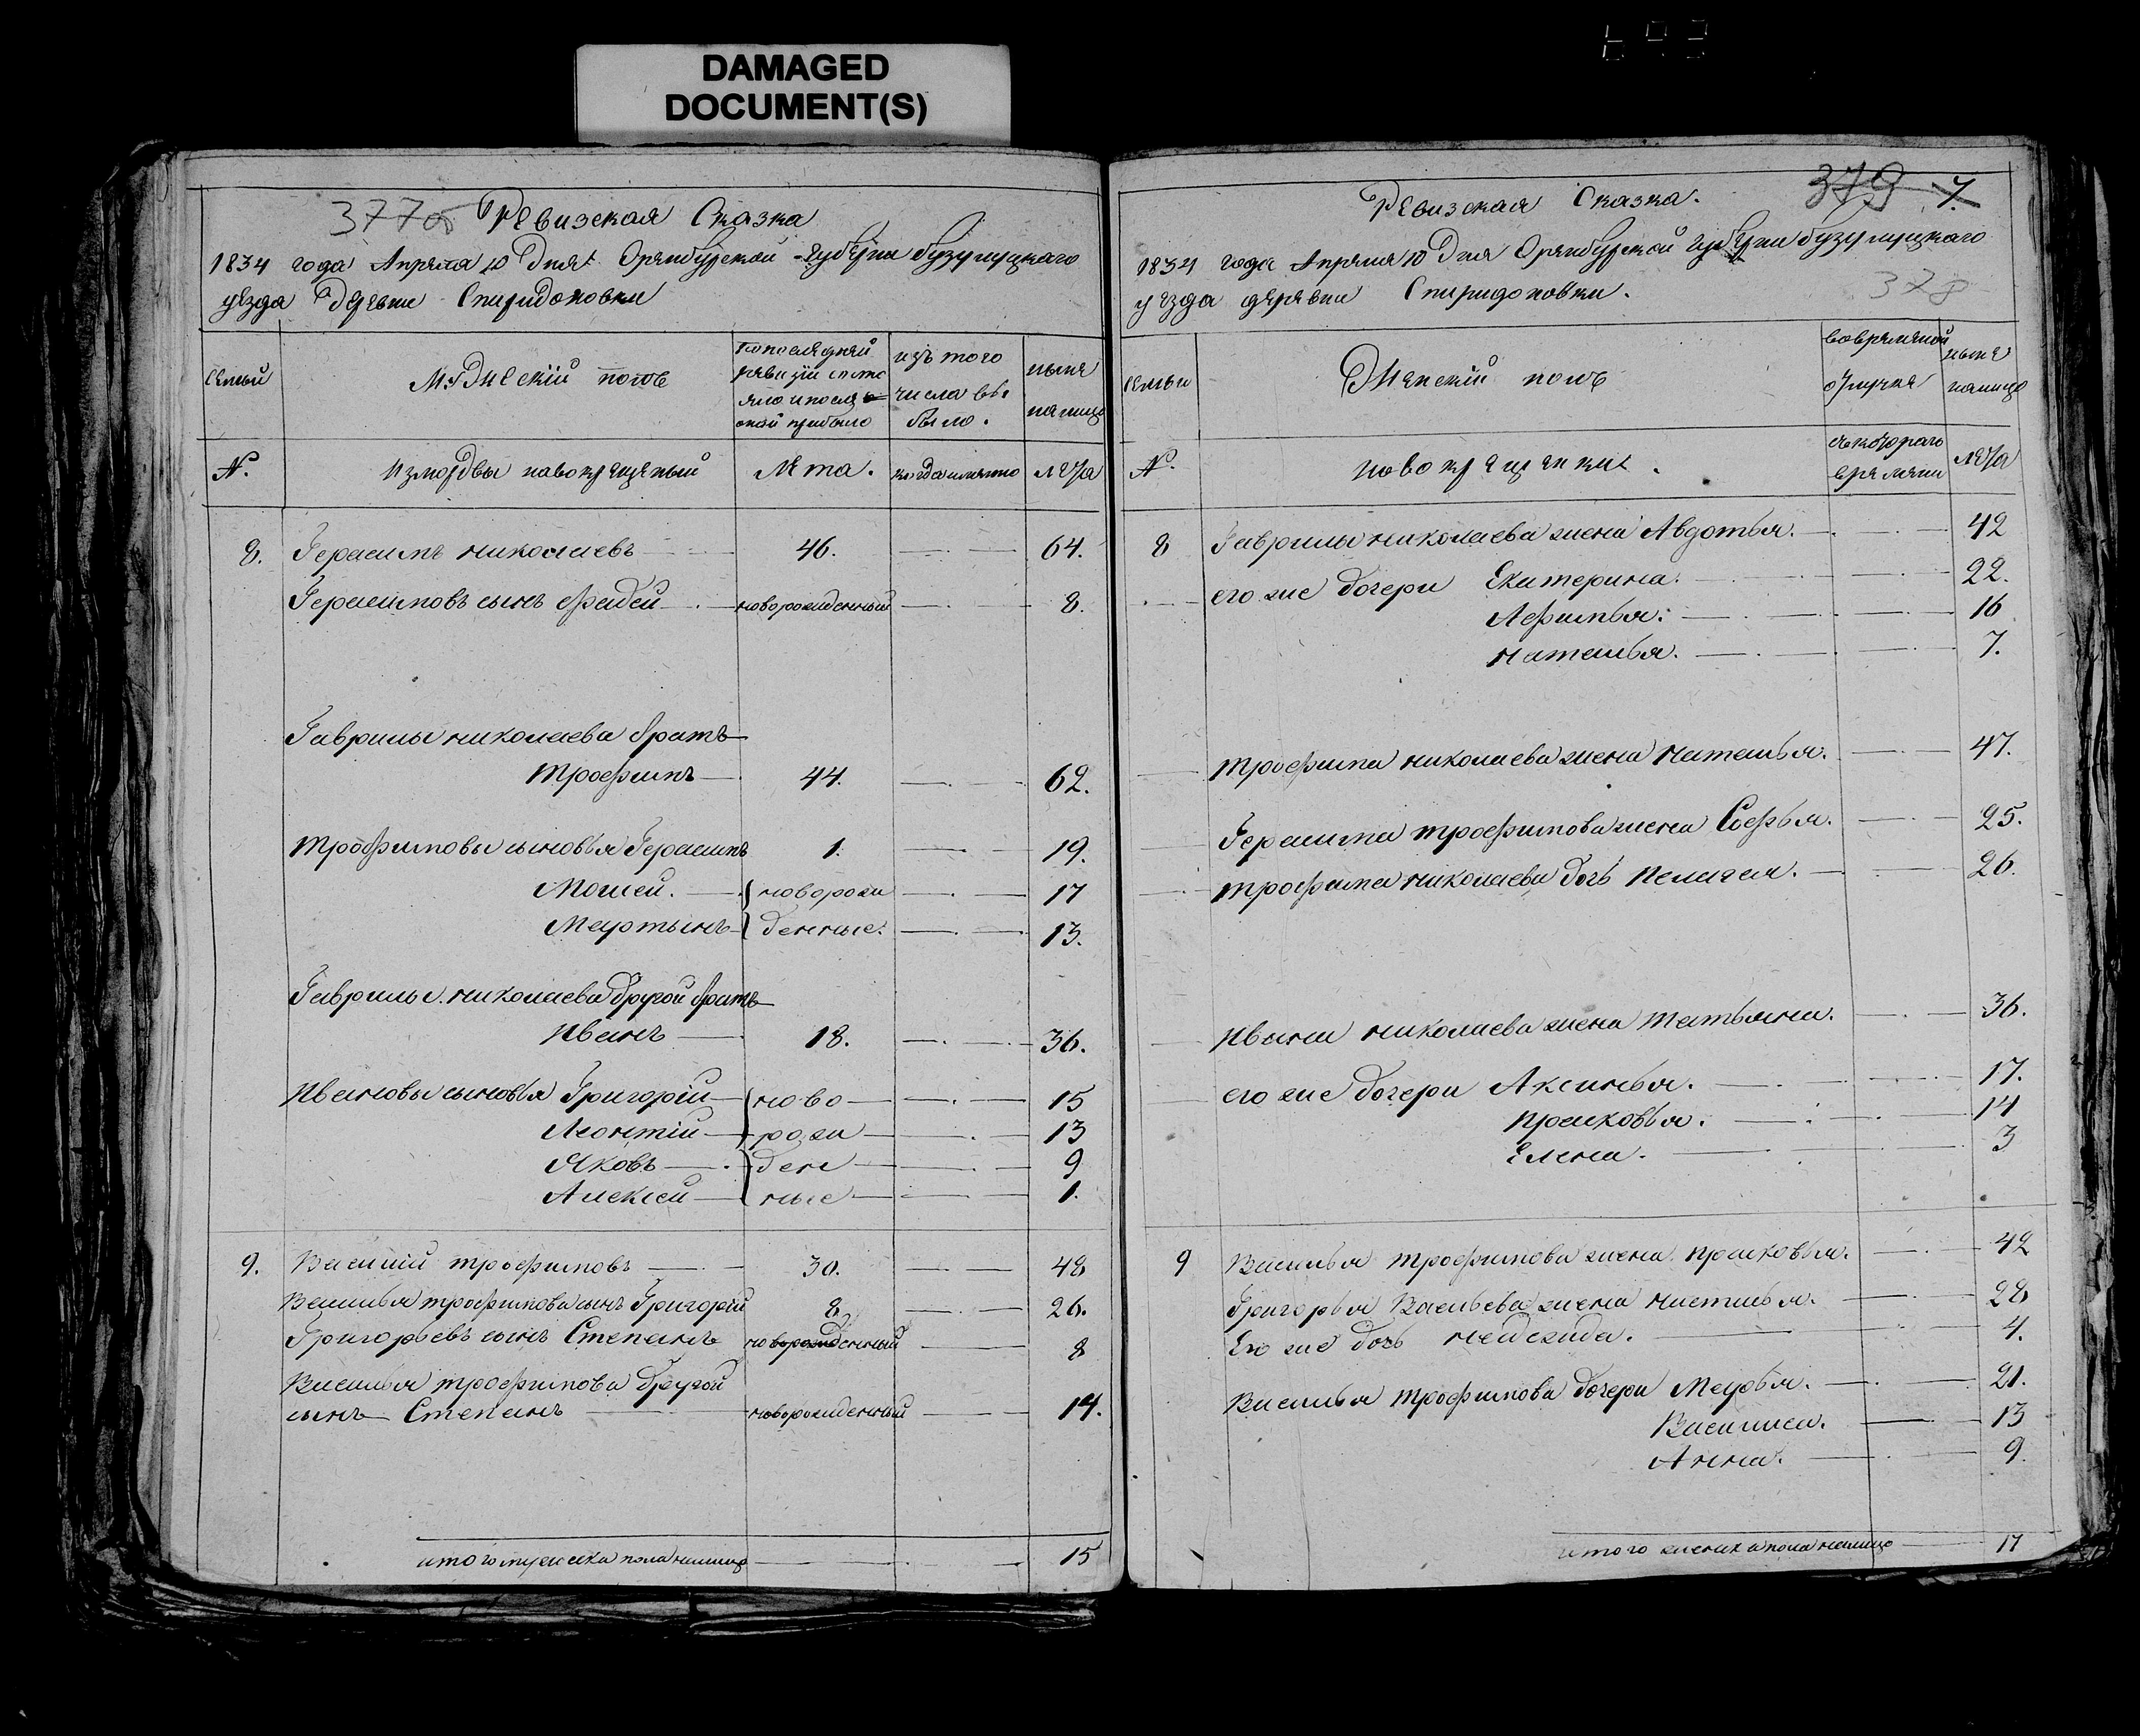 DAMAGED
DOCUMENT(S)
377об
Ревизская Сказка
1834 года Апреля 10 Дня Оренбурской Губерни бузулуцкаго
уезда Деревни Спиридоновки
семьи
Мужескій полъ
попоследней
ревизіи состо
яло ипосле
оной прибыло
изъ того
числа вы
было.
ныня
налицо
№.
Измордвы навокрещеный
Лета.
когда имянно
лета
8. Герасимъ николаевъ 46. 64.
Герасимовъ сынъ Фадей новорожденный 8.
Гаврилы николаева братъ
трофимъ 44. 62.
трофимовы сыновья Герасимъ 1. 19.
Мосей. новорож 17
Мартынъ денные. 13.
Гаврилы николаева другой братъ
Иванъ 18. 36.
Ивановы сыновья Григорій ново 15
Леонтій рож 13
Яковъ ден 9
Алексей ные 1.
9. Василій трофимовъ 30. 48
Василья трофимова сынъ Григорій 8 26.
Григорьевъ сынъ Степанъ новорожденный 8
Василья трофимова другой
сынъ Степанъ новорожденный 14.
итого мужеска пола налицо 15
379 7.
Ревизская Сказка.
1834 года Апреля 10 Дня Оренбурской Губерни бузулуцкаго
уезда деревни Спиридоновки.
378
семьи
Женскій полъ
вовременой
отлучке
ныня
налицо
№.
новокрещенки.
съкоторого
времяни
лета
8 Гаврилы николаева жена Авдотья. 42
его же дочери Екатерина. 22.
Афимья. 16
наталья. 7.
трофима николаева жена наталья. 47.
Герасима трофимова жена Софья. 25.
трофима николаева дочь пелагея. 26.
Ивана николаева жена татьяна. 36.
его же дочери Аксинья. 17.
прасковья. 14
Елена. 3
9 Василья трофимова жена прасковья. 42
Григорья Васильева жена настасья. 28
Его же дочь надежда. 4.
Василья трофимова дочери Марья. 21.
Василиса. 13
Анна. 9.
итого женска пола налицо 17